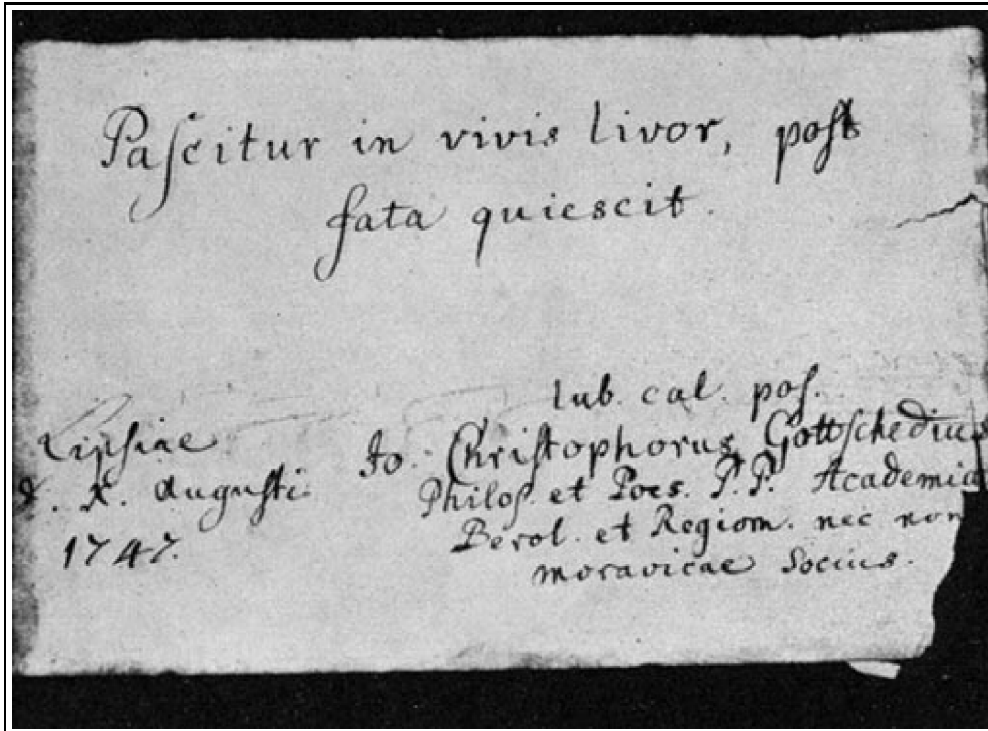 Pascitur in vivis livor, post
fata quiescit.
lub. cal. pos.
Lipsiae
d. X. Augusti
1747.
Io. Christophorus Gottschedius
Philos. et Poes. P.P. Academia
Berol. et Regiom. nec non
moravicae Socius.